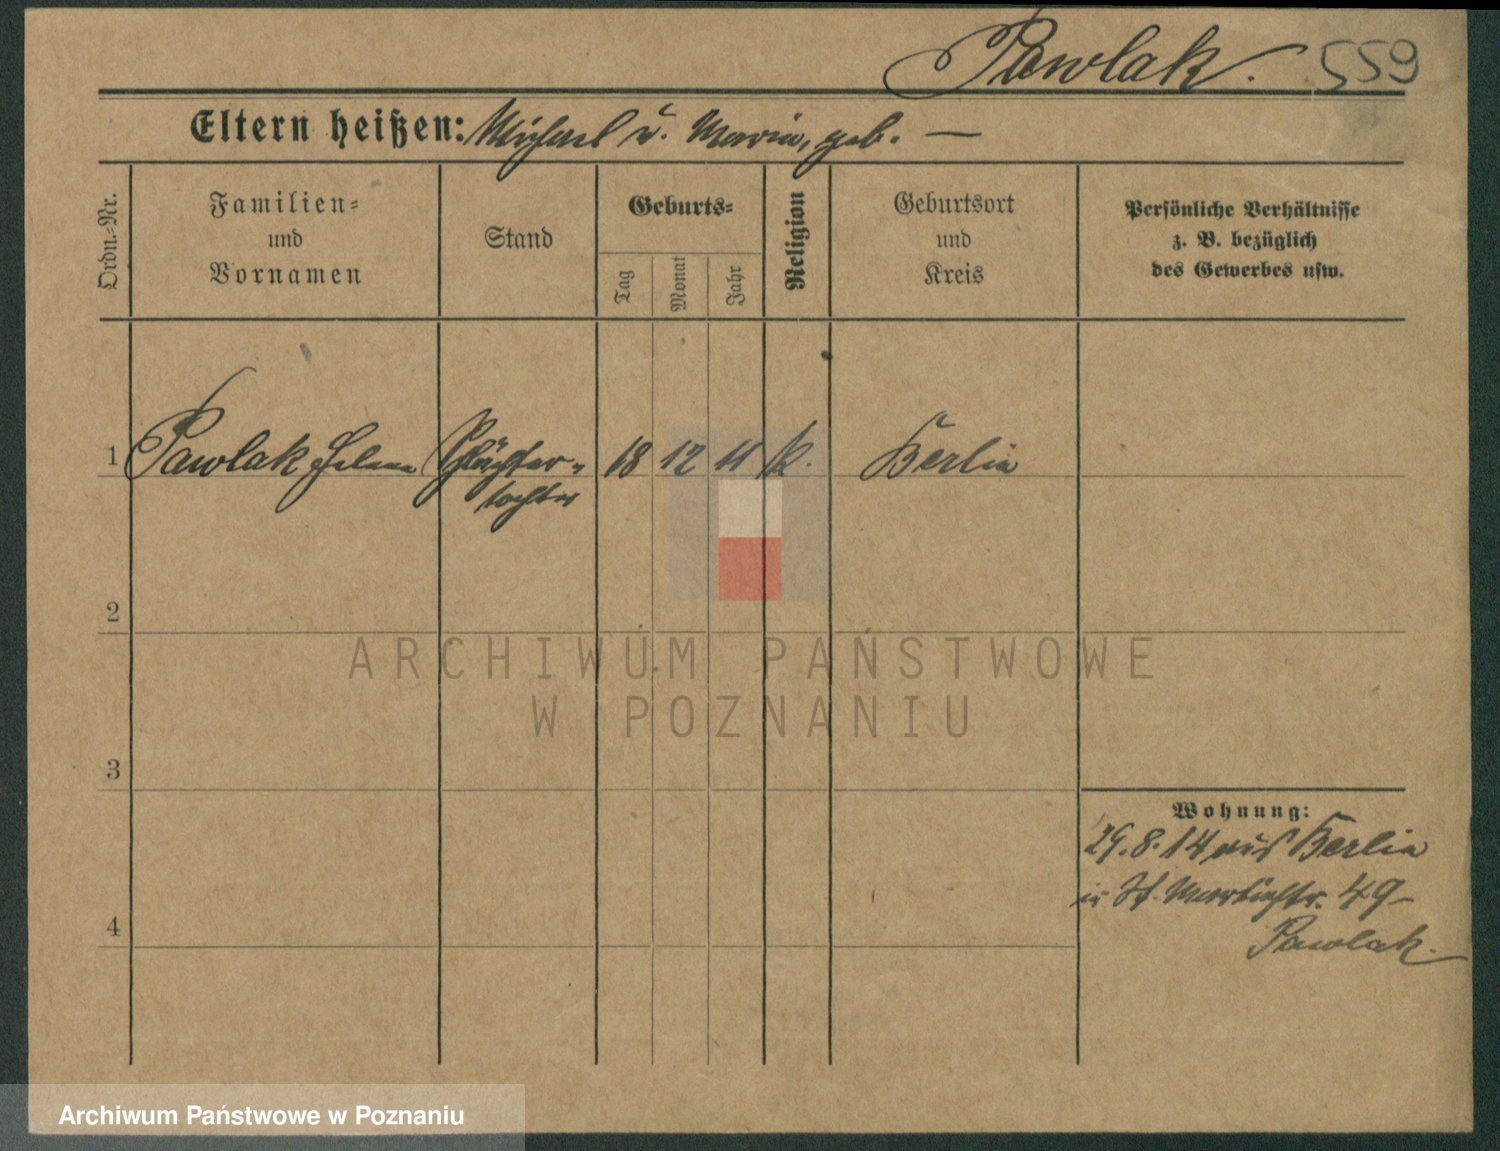 Pawlak. 559
Eltern heißen: Michael u. Maria, geb. —
Ordn.-Nr.
Familien-
und
Vornamen
Stand
Geburts-
Tag
Monat
Jahr
Religion
Geburtsort
und
Kreis
Persönliche Verhältnisse
z. B. bezüglich
des Gewerbes usw.
1 Pawlak Helene 18 12 11 k. Berlin
tochter
2
3
4
Wohnung:
29.8.14 aus Berlin
in St. Martinstr. 49
Pawlak.
ARCHIWUM PAŃSTWOWE
W POZNANIU
Archiwum Państwowe w Poznaniu